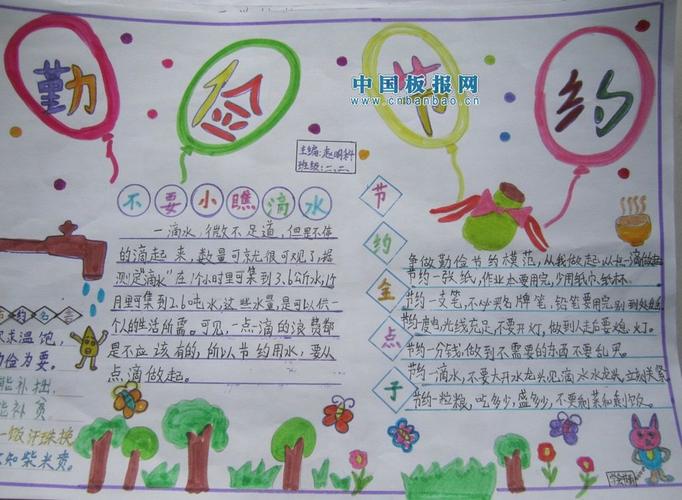 勤俭节约
中国板报网
www.cnbanbao.cn
主编:赵明科
班级:二、二
不要小瞧滴水
一滴水,微不足道,但是不停
的滴起来,数量可就很可观了,据
测定"滴水"在1个小时里可集到3.6公斤水,1个
月里可集到2.6吨水,这些水量,是可以供一
个人的生活所需。可见,一点一滴的浪费都
是不应该有的,所以节约用水,要从
点滴做起。
节约金点子
争做勤俭节约模范,从我做起,从一滴做起
节约一张纸,作业本要用完,少用纸巾、纸杯.
节约一支笔,不必买名牌笔,铅笔要用完,别到处乱
节约一度电,光线充足,不要开灯,做到人走后要熄灯.
节约一分钱,做到不需要的东西不要乱买.
节约一滴水,不要大开水龙头,见滴水水龙头,立刻关紧.
节约一粒粮,吃多少,盛多少,不要剩菜和剩饭.
约名言
求温饱,
俭为要.
能补拙,
能补贫
一饭汗珠换
知柴米贵.